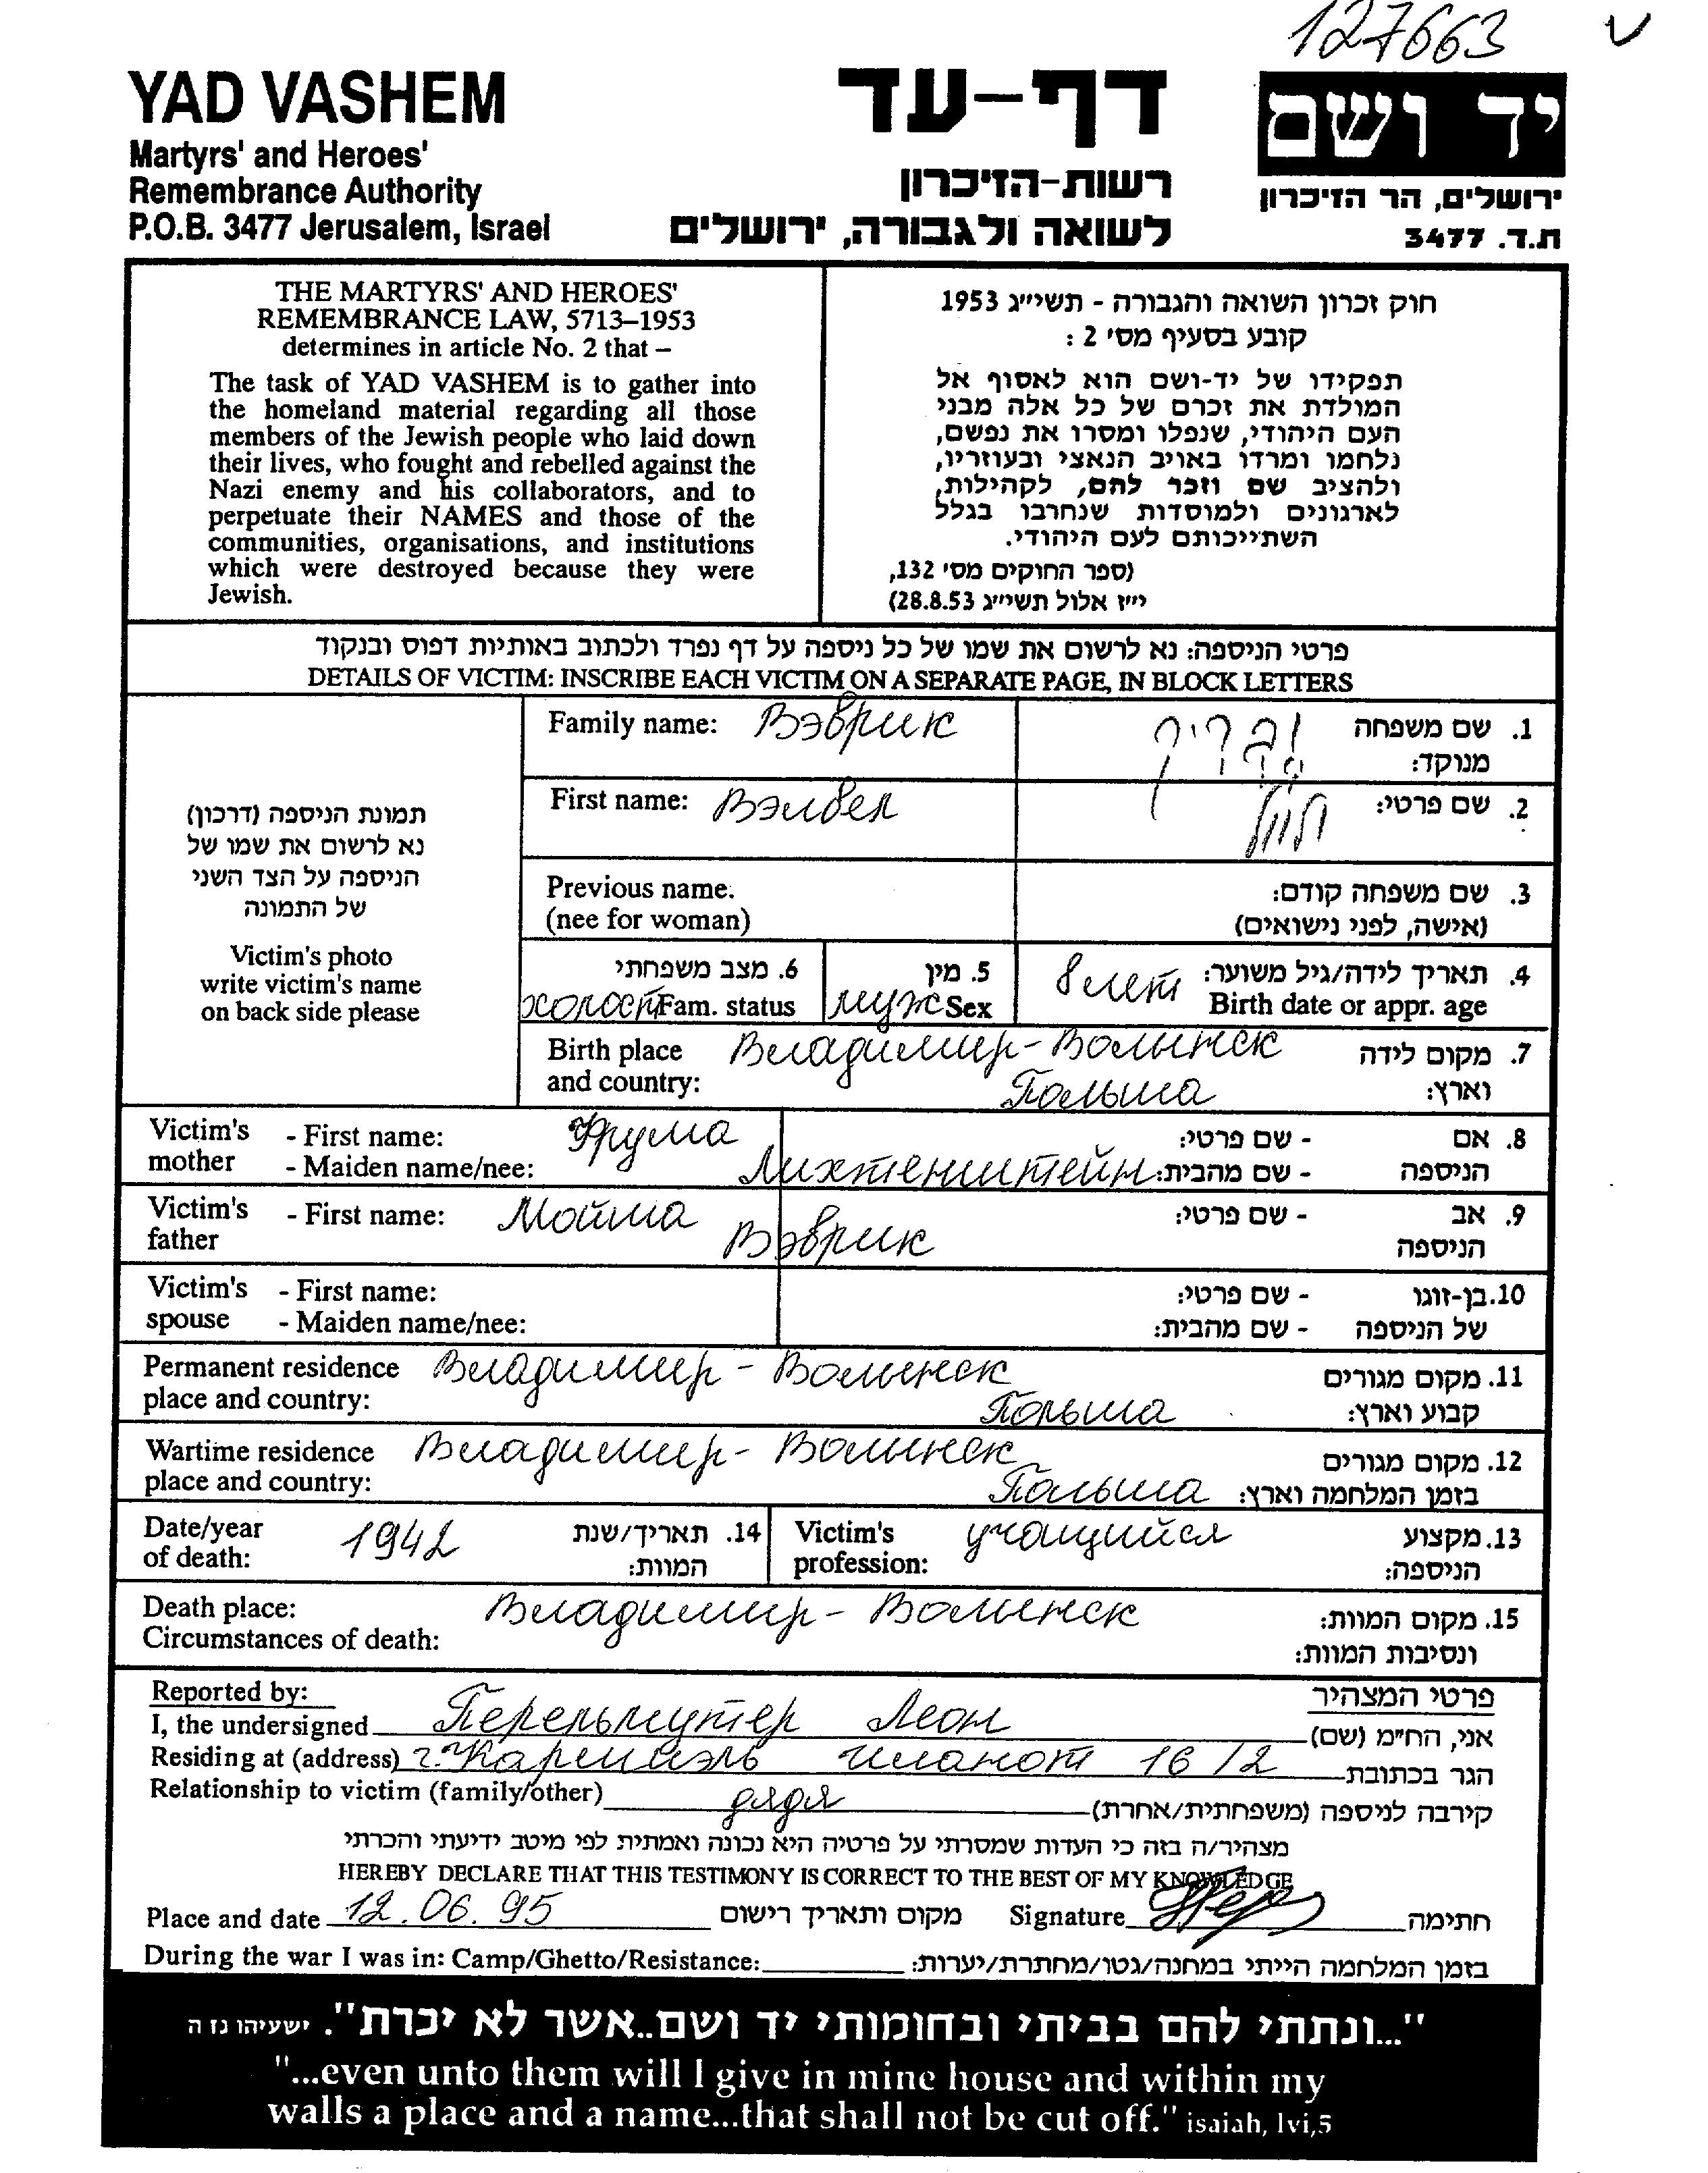 127663
YAD VASHEM
Martyrs' and Heroes'
Remembrance Authority
P.O.B. 3477 Jerusalem, Israel
דף-עד
רשות-הזיכרון
לשואה ולגבורה, ירושלים
יד ושם
ירושלים, הר הזיכרון
ת.ד. 3477
THE MARTYRS' AND HEROES'
REMEMBRANCE LAW, 5713–1953
determines in article No. 2 that –
The task of YAD VASHEM is to gather into
the homeland material regarding all those
members of the Jewish people who laid down
their lives, who fought and rebelled against the
Nazi enemy and his collaborators, and to
perpetuate their NAMES and those of the
communities, organisations, and institutions
which were destroyed because they were
Jewish.
חוק זכרון השואה והגבורה - תשי״ג 1953
קובע בסעיף מס' 2 :
תפקידו של יד-ושם הוא לאסוף אל
המולדת את זכרם של כל אלה מבני
העם היהודי, שנפלו ומסרו את נפשם,
נלחמו ומרדו באויב הנאצי ובעוזריו,
ולהציב שם וזכר להם, לקהילות,
לארגונים ולמוסדות שנחרבו בגלל
השתייכותם לעם היהודי.
(ספר החוקים מס' 132,
י״ז אלול תשי״ג 28.8.53)
פרטי הניספה: נא לרשום את שמו של כל ניספה על דף נפרד ולכתוב באותיות דפוס ובנקוד
DETAILS OF VICTIM: INSCRIBE EACH VICTIM ON A SEPARATE PAGE, IN BLOCK LETTERS
תמונת הניספה (דרכון)
נא לרשום את שמו של
הניספה על הצד השני
של התמונה
Victim's photo
write victim's name
on back side please
Family name: Вэврик
1. שם משפחה
מנוקד:
First name: Вэлвел
2. שם פרטי:
Previous name.
(nee for woman)
3. שם משפחה קודם:
(אישה, לפני נישואים)
6. מצב משפחתי
холост Fam. status
5. מין
муж Sex
4. תאריך לידה/גיל משוער: 8 лет
Birth date or appr. age
Birth place Владимир-Волынск
and country: Польша
7. מקום לידה
וארץ:
Victim's - First name: Фрума
mother - Maiden name/nee: Лихтенштейн
8. אם - שם פרטי:
הניספה - שם מהבית:
Victim's - First name: Мойша
father Вэврик
9. אב - שם פרטי:
הניספה
Victim's - First name:
spouse - Maiden name/nee:
10. בן-זוגו - שם פרטי:
של הניספה - שם מהבית:
Permanent residence Владимир-Волынск
place and country: Польша
11. מקום מגורים
קבוע וארץ:
Wartime residence Владимир-Волынск
place and country: Польша
12. מקום מגורים
בזמן המלחמה וארץ:
Date/year 1942
of death:
14. תאריך/שנת
המוות:
Victim's учащийся
profession:
13. מקצוע
הניספה:
Death place: Владимир-Волынск
Circumstances of death:
15. מקום המוות:
ונסיבות המוות:
Reported by:
פרטי המצהיר
I, the undersigned Перельмутер Леон אני, הח״מ (שם)
Residing at (address) г. Кармиэль иланот 16/2 הגר בכתובת
Relationship to victim (family/other) дядя קירבה לניספה (משפחתית/אחרת)
מצהיר/ה בזה כי העדות שמסרתי על פרטיה היא נכונה ואמתית לפי מיטב ידיעתי והכרתי
HEREBY DECLARE THAT THIS TESTIMONY IS CORRECT TO THE BEST OF MY KNOWLEDGE
Place and date 12.06.95 מקום ותאריך רישום Signature חתימה
During the war I was in: Camp/Ghetto/Resistance: בזמן המלחמה הייתי במחנה/גטו/מחתרת/יערות:
"...ונתתי להם בביתי ובחומותי יד ושם..אשר לא יכרת". ישעיהו נז ה
"...even unto them will I give in mine house and within my
walls a place and a name...that shall not be cut off." isaiah, lvi,5